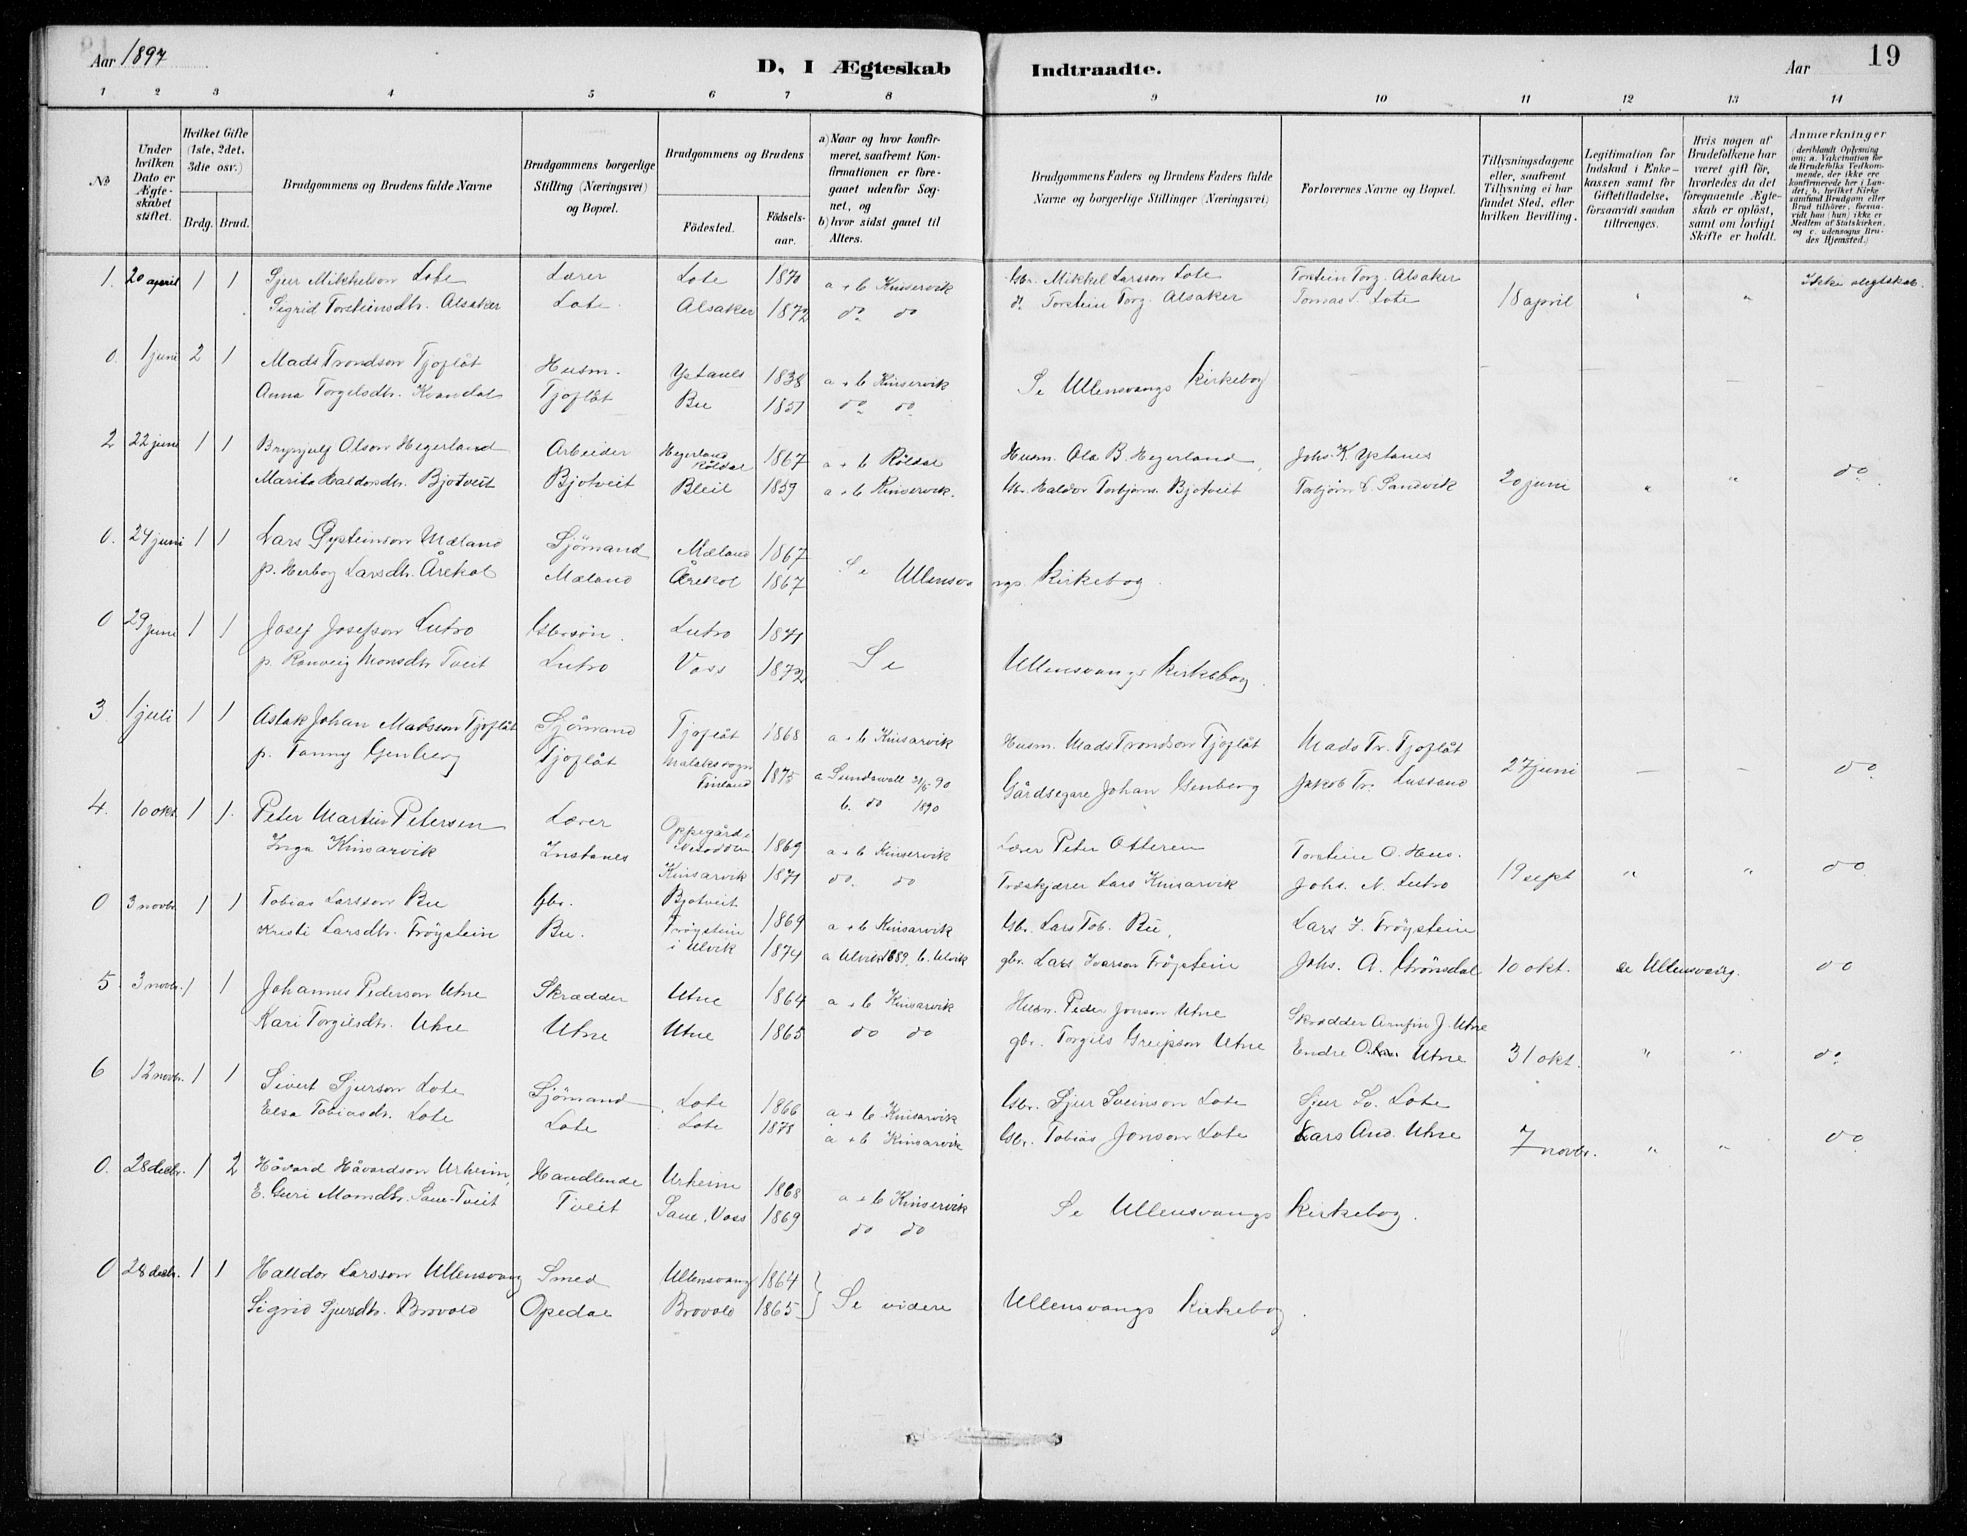 19
Aar 1897
D, I Ægteskab Indtraadte.
Aar
1 2 3 4 5 6 7 8 9 10 11 12 13 14
No
Under hvilken Dato er Ægteskabet stiftet.
Hvilket Gifte (1ste, 2det, 3die osv.)
Brdg. Brud.
Brudgommens og Brudens fulde Navne
Brudgommens borgerlige Stilling (Næringsvei) og Bopæl.
Brudgommens og Brudens
Födested.
Födsels-aar.
a) Naar og hvor konfirmeret, saafremt Konfirmationen er foregaaet udenfor Sognet, og
b) hvor sidst gaaet til Alters.
Brudgommens Faders og Brudens Faders fulde Navne og borgerlige Stillinger (Næringsvei)
Forlovernes Navne og Bopæl.
Tillysningsdagene eller, saafremt Tillysning ei har fundet Sted, efter hvilken Bevilling.
Legitimation for Indskud i Enkekassen samt for Giftetilladelse, forsaavidt saadan tiltrænges.
Hvis nogen af Brudefolkene har været gift før, hvorledes da det foregaaende Ægteskab er opløst, samt om lovligt Skifte er holdt.
Anmærkninger (deriblandt Oplysning om: a. Vakcination for de Brudefolks Vedkommende, der ikke ere konfirmerede her i Landet; b. hvilket Kirkesamfund Brudgom eller Brud tilhører, forsaavidt han (hun) ikke er Medlem af Statskirken, og c. udensogns Brudes Hjemsted.)
1. 20 april 1 1 Sjur Mikkelson Lote Lærer Lote 1871 a + b Kinservik Gbr. Mikkel Larsson Lote Torstein Torg. Alsaker Ikke slegtskab.
Sigrid Torsteinsdtr. Alsaker Lote. Alsaker 1872 do do d. Torstein Torg. Alsaker Tomas S. Lote 18 april " "
0. 1 juni 2 1 Mads Trondson Tjoflåt Husm. Ystanes 1838 a + b Kinservik
Anna Torgilsdtr. Kvandal Tjoflåt Bu 1851 do do Se Ullensvangs Kirkebog
2 22 juni 1 1 Brynjulf Olson Hegerland Arbeider Hegerland Röldal 1867 a + b Röldal Husm. Ola B. Hegerland, Johs. K. Ystanes
Marita Haldorsdtr. Bjotveit Bjotveit Bleil 1859 a + b Kinservik. Gbr. Haldor Torbjörns. Bjotveit Torbjörn S. Sandvik 20 juni " " do.
0. 24 juni 1 1 Lars Oysteinson Mæland Sjömand Mæland 1867
p. Herbog Larsdtr. Årekol Mæland Årekol 1867 Se Ullensvangs Kirkebog.
0 29 juni 1 1 Josef Josefson Lutro Gbrsön. Lutro 1871
p. Ranveig Monsdtr Tveit Lutro Voss 1872 Se Ullensvangs Kirkebog.
3 1 juli 1 1 Aslak Johan Madsson Tjoflåt Sjömand Tjoflåt 1868 a + b Kinsarvik Husm. Mads Trondson Tjoflåt Mads Tr. Tjoflåt
p. Fanny Genberg Tjoflåt Malaks sogn Finland 1875 a Sundswall 21/5 90 Gårdsegare Johan Genberg Jakob Tr. Lussand 27 juni — — do
b. do 1890
4. 10 okt. 1 1. Peter Martin Petersen Lærer Oppegård i Nesodden 1869 a + b Kinservik Lærer Peter Otteren Torstein O. Hus.
Inga Kinsarvik Instanes Kinsarvik 1871 do. do Træskjærer Lars Kinsarvik Johs. N. Lutro 19 sept " " do
0 3 novbr. 1 1 Tobias Larsson Bu gbr. Bjotveit 1869 a + b Kinsarvik Gbr. Lars Tob. Bu, Lars J. Fröystein
Kristi Larsdtr. Fröystein Bu. Fröystein i Ulvik 1874 a Ulvik 1889. b. Ulvik gbr. Lars Ivarson Fröystein Johs. A. Grönsdal 10 okt. se Ullensvang. do
5. 3 novbr. 1 1 Johannes Pederson Utne Skrædder Utne 1864 a + b Kinsarvik Husm. Peder Jonson Utne Skrædder Arnfin J. Utne
Kari Torgilsdtr. Utne Utne Utne 1865 do do gbr. Torgils Greipson Utne Endre Utne 31 okt. " " do.
6 12 novbr. 1 1 Sivert Sjurson Lote Sjömand Lote 1866 a + b Kinsarvik Gbr. Sjur Sveinson Lote Sjur Sv. Lote
Elsa Tobiasdtr. Lote Lote Lote 1878 a + b Kinsarvik Gbr. Tobias Jonson Lote Lars And. Utne 7 novbr. " " do
0. 28 decbr. 1 2 Håvard Håvardson Urheim, Handlende Urheim 1868 a + b Kinservik
E. Guri Monsdtr. Saue-Tveit Tveit Saue, Voss 1869 do do Se Ullensvangs Kirkebog.
0 28 decbr. 1 1 Halldor Larsson Ullensvang Smed Ullensvang 1864
Sigrid Sjursdtr. Brovold Opedal Brovold 1865 Se videre Ullensvangs Kirkebog.